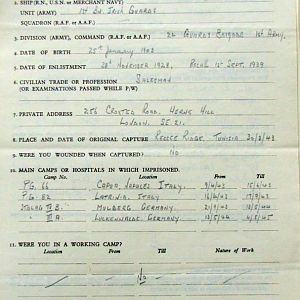 2. SHIP (R.N., U.S.N. OR MERCHANT NAVY)
UNIT (ARMY) 1st Bn. Irish Guards
SQUADRON (R.A.F. or A.A.F.)
3. DIVISION (ARMY), COMMAND (R.A.F. or A.A.F.) 24 Guards Brigade 1st Army.
4. DATE OF BIRTH 25th January 1902
5. DATE OF ENLISTMENT 28th November 1928, 1st Sept. 1939
6. CIVILIAN TRADE OR PROFESSION Salesman
(OR EXAMINATIONS PASSED WHILE P/W)
7. PRIVATE ADDRESS 256 Croxted Road. Herne Hill
London. SE. 21.
8. PLACE AND DATE OF ORIGINAL CAPTURE Ridge, Tunisia
9. WERE YOU WOUNDED WHEN CAPTURED? No
10. MAIN CAMPS OR HOSPITALS IN WHICH IMPRISONED.
Camp No. Location From Till
PG. 66 Capua, Italy.
PG. 82 Laterina, Italy.
Stalag IV B. Mulberg Germany.
" III A. Luckenwalde, Germany.
11. WERE YOU IN A WORKING CAMP?
Location From Till Nature of Work
No